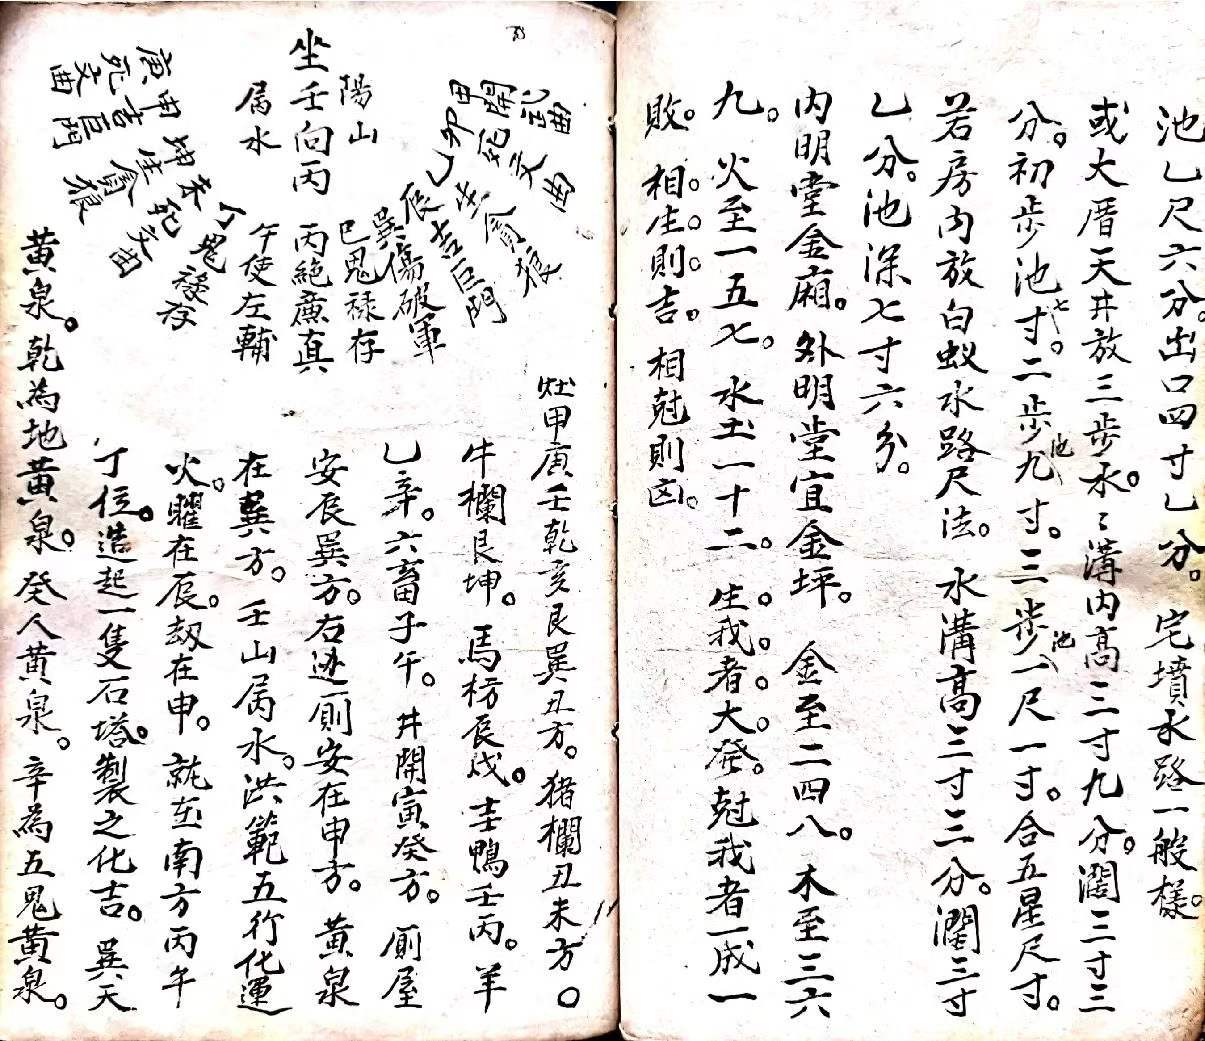 池乙尺六分。出口四寸乙分。宅墳水路一般樣。
或大厝天井放三步水。々溝內高三寸九分。濶三寸三
分。初步池七寸。二步池九寸。三步池一尺一寸。合五星尺寸。
若房內放白蚁水路尺法。水溝高三寸三分。濶三寸
乙分。池深七寸六分。
內明堂金廂。外明堂宜金坪。金至二四八。木至三六
九。火至一五七。水土一十二。生我者大發。尅我者一成一
敗。相生則吉。相尅則凶。
甲開
乙卯死文曲
乙生貪狼
辰吉巨門
巽傷破軍
陽山
巳鬼祿存
坐壬向丙
丙絕廉真
屬水
午使左輔
丁鬼祿存
未死文曲
坤生貪狼
申吉巨門
庚死文曲
灶甲庚壬乾亥艮巽丑方。猪欄丑未方。
牛欄艮坤。馬枋辰戌。圭鴨壬丙。羊
乙辛。六畜子午。井開寅癸方。厠屋
安辰巽方。右边厠安在申方。黃泉
在巽方。壬山属水。洪範五行化運
火。曜在辰。刼在申。就在南方丙午
丁位。造起一隻石塔。製之化吉。巽天
黃泉。乾為地黃泉。癸人黃泉。辛為五鬼黃泉。